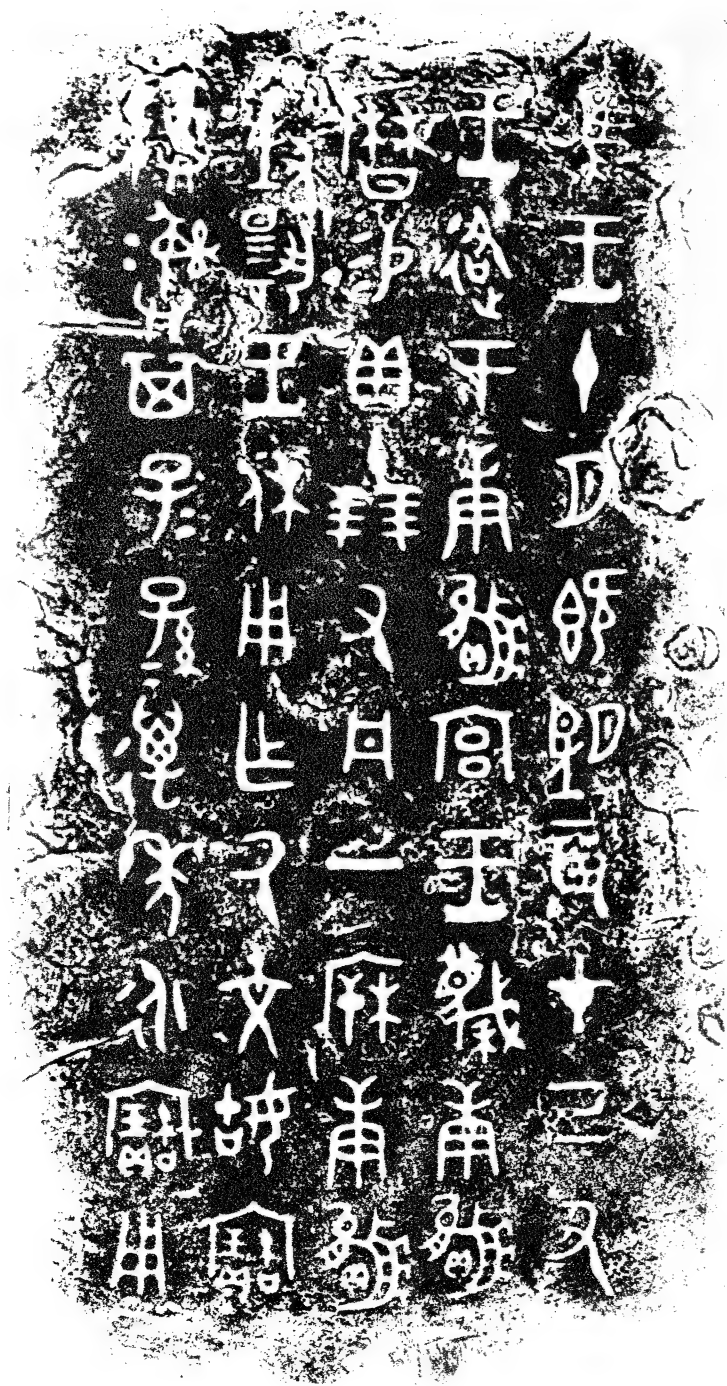 隹王十月既望辰才己丑
王各于庚嬴宮王蔑庚嬴
曆易貝十朋又丹一㭒庚嬴
對揚王休用乍氒文姑寶
尊彝其子=孫=萬年永寶用